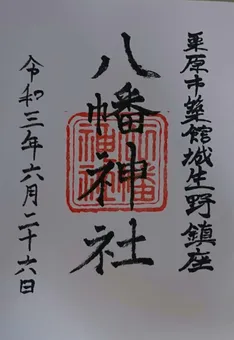 栗原市築館城生野鎮座
八幡神社
令和三年六月二十六日